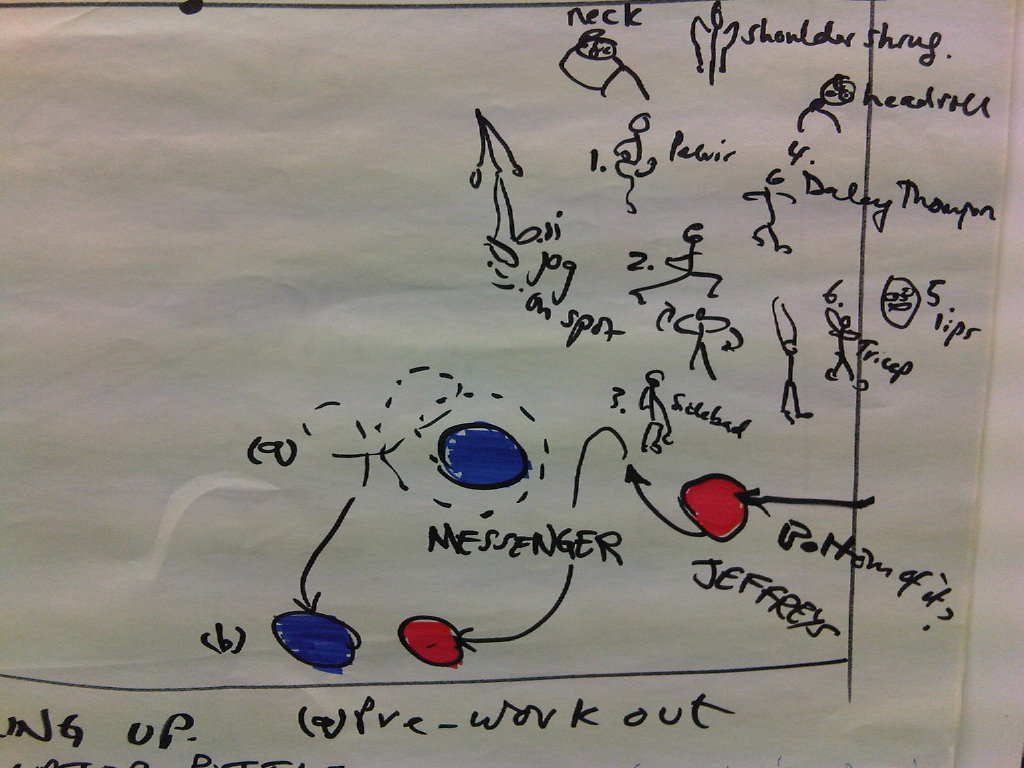 neck
shoulder shrug.
headroll
1. Pelvic
4.
Daley Thompson
0.ii
jog
on spot
2.
5.
lips
6.
Tricep
3. Sidebend
(a)
MESSENGER
JEFFREYS
Bottom of it?
(b)
ING UP. (a) Pre-work out